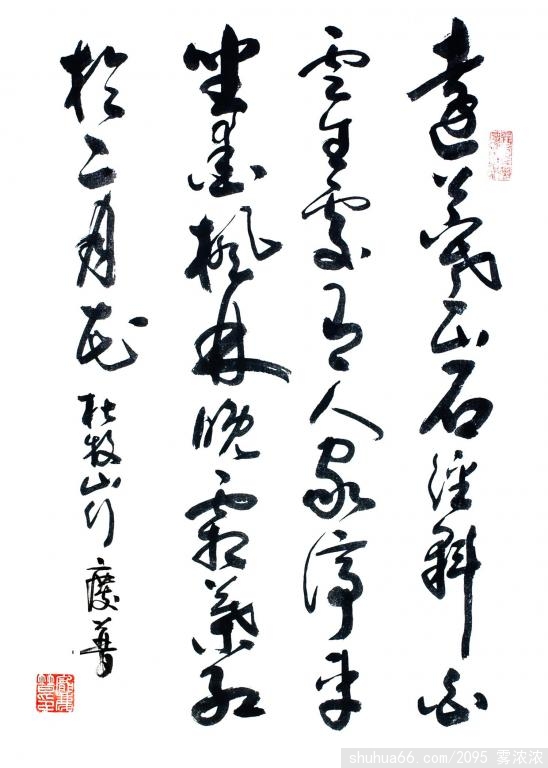 遠上寒山石徑斜白
雲生處有人家停車
坐愛楓林晚霜葉紅
於二月花 杜牧山行
shuhua66.com/2095 雾浓浓